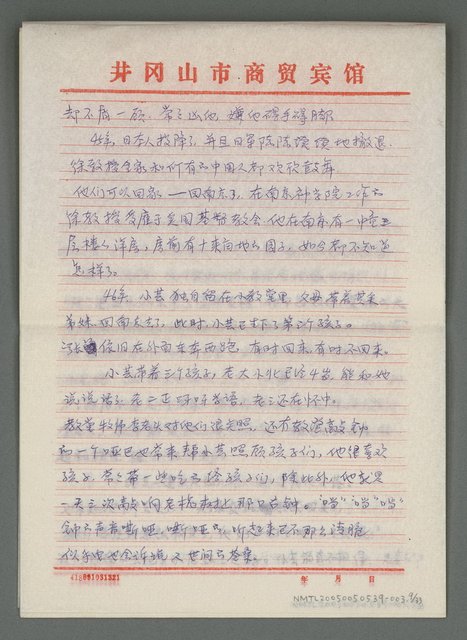 井冈山市商贸宾馆
却不屑一顾,常之凶他,嫌他碍手碍脚
45年,日本人投降了,并且日军陆陆续续地撤退.
徐教授全家和所有的中国人都欢欣鼓舞.
他们可以回家——回南京了,在南京神学院工作的
徐教授隶属于美国基督教会,他在南京有一幢三
层楼的洋房,房前有十来亩地的园子,如今都不知道
怎样了.
46年,小芸独自留在小教堂里,父母带着其余
弟妹回南京去了,此时,小芸已生下了第三个孩子。
依旧在外面东奔西跑,有时回来,有时不回来.
小芸带着三个孩子,老大小北已经4岁,能和她
说说话了,老二正呀呀学语,老三还在怀中.
教堂牧师李老头对他们很关照,还有教堂敲钟
的一个哑巴也常来帮小芸照顾孩子们,他很喜欢
孩子,常之带一些吃的给孩子们,除此外,他就是
一天三次敲响老槐树上那口古钟。"当""当""当"
钟的声音嘶哑,嘶哑的,听起来已不那么清脆
似乎它也会诉说人世间的苍桑。
418031031321
年 月 日
NMTL20050050539-003 9/33